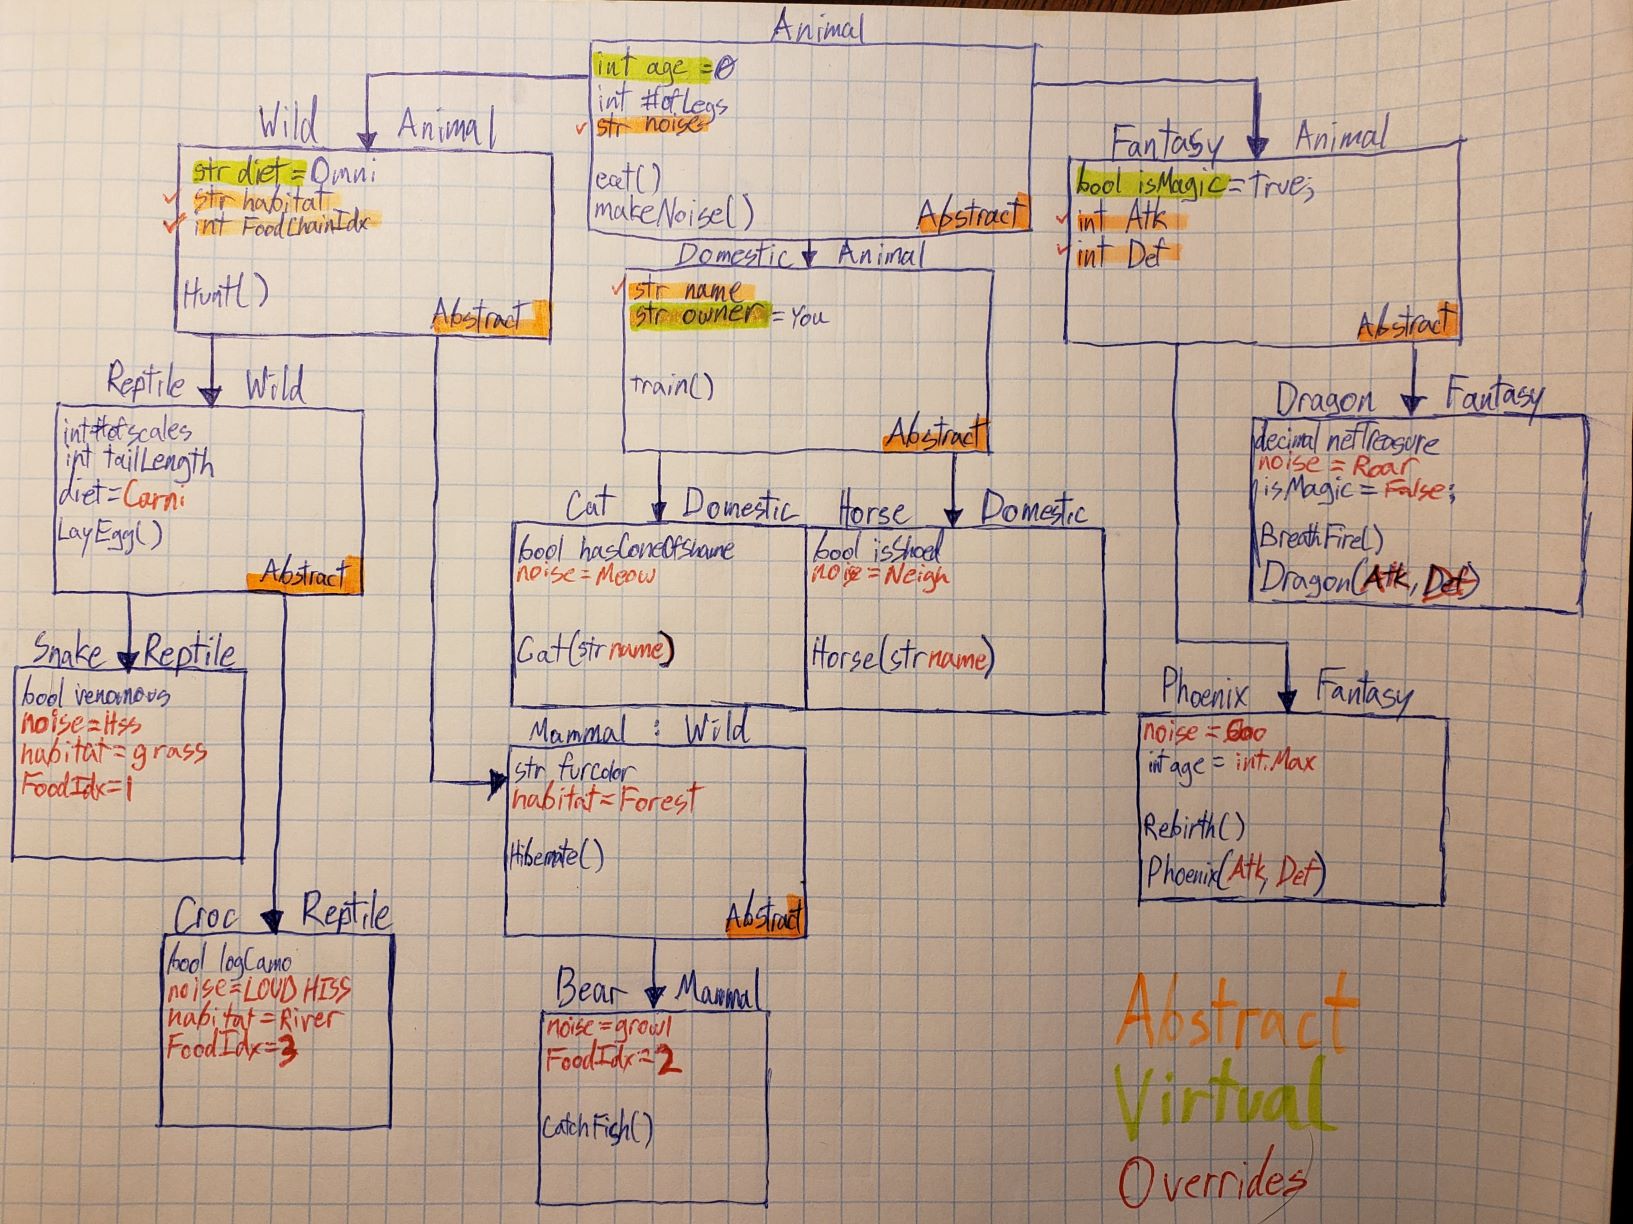 Animal
int age = 0
int #ofLegs
str noise
eat()
makeNoise()
Abstract
Wild Animal
str diet = Omni
str habitat
int FoodChainIdx
Hunt()
Abstract
Fantasy Animal
bool isMagic = True;
int Atk
int Def
Abstract
Domestic Animal
str name
str owner = You
train()
Abstract
Reptile Wild
int #ofscales
int tailLength
diet = Carni
LayEgg()
Abstract
Dragon Fantasy
decimal netTreasure
noise = Roar
isMagic = False;
BreathFire()
Dragon(Atk, Def)
Cat Domestic
bool hasConeOfShame
noise = Meow
Cat(str name)
Horse Domestic
bool isShoed
noise = Neigh
Horse(str name)
Snake Reptile
bool venomous
noise = Hss
habitat = grass
FoodIdx = 1
Mammal : Wild
str furcolor
habitat = Forest
Hibernate()
Abstract
Phoenix Fantasy
noise =
int age = int.Max
Rebirth()
Phoenix(Atk, Def)
Croc Reptile
bool logCamo
noise = LOUD HISS
habitat = River
FoodIdx = 3
Bear Mammal
noise = growl
FoodIdx = 2
CatchFish()
Abstract
Virtual
Overrides